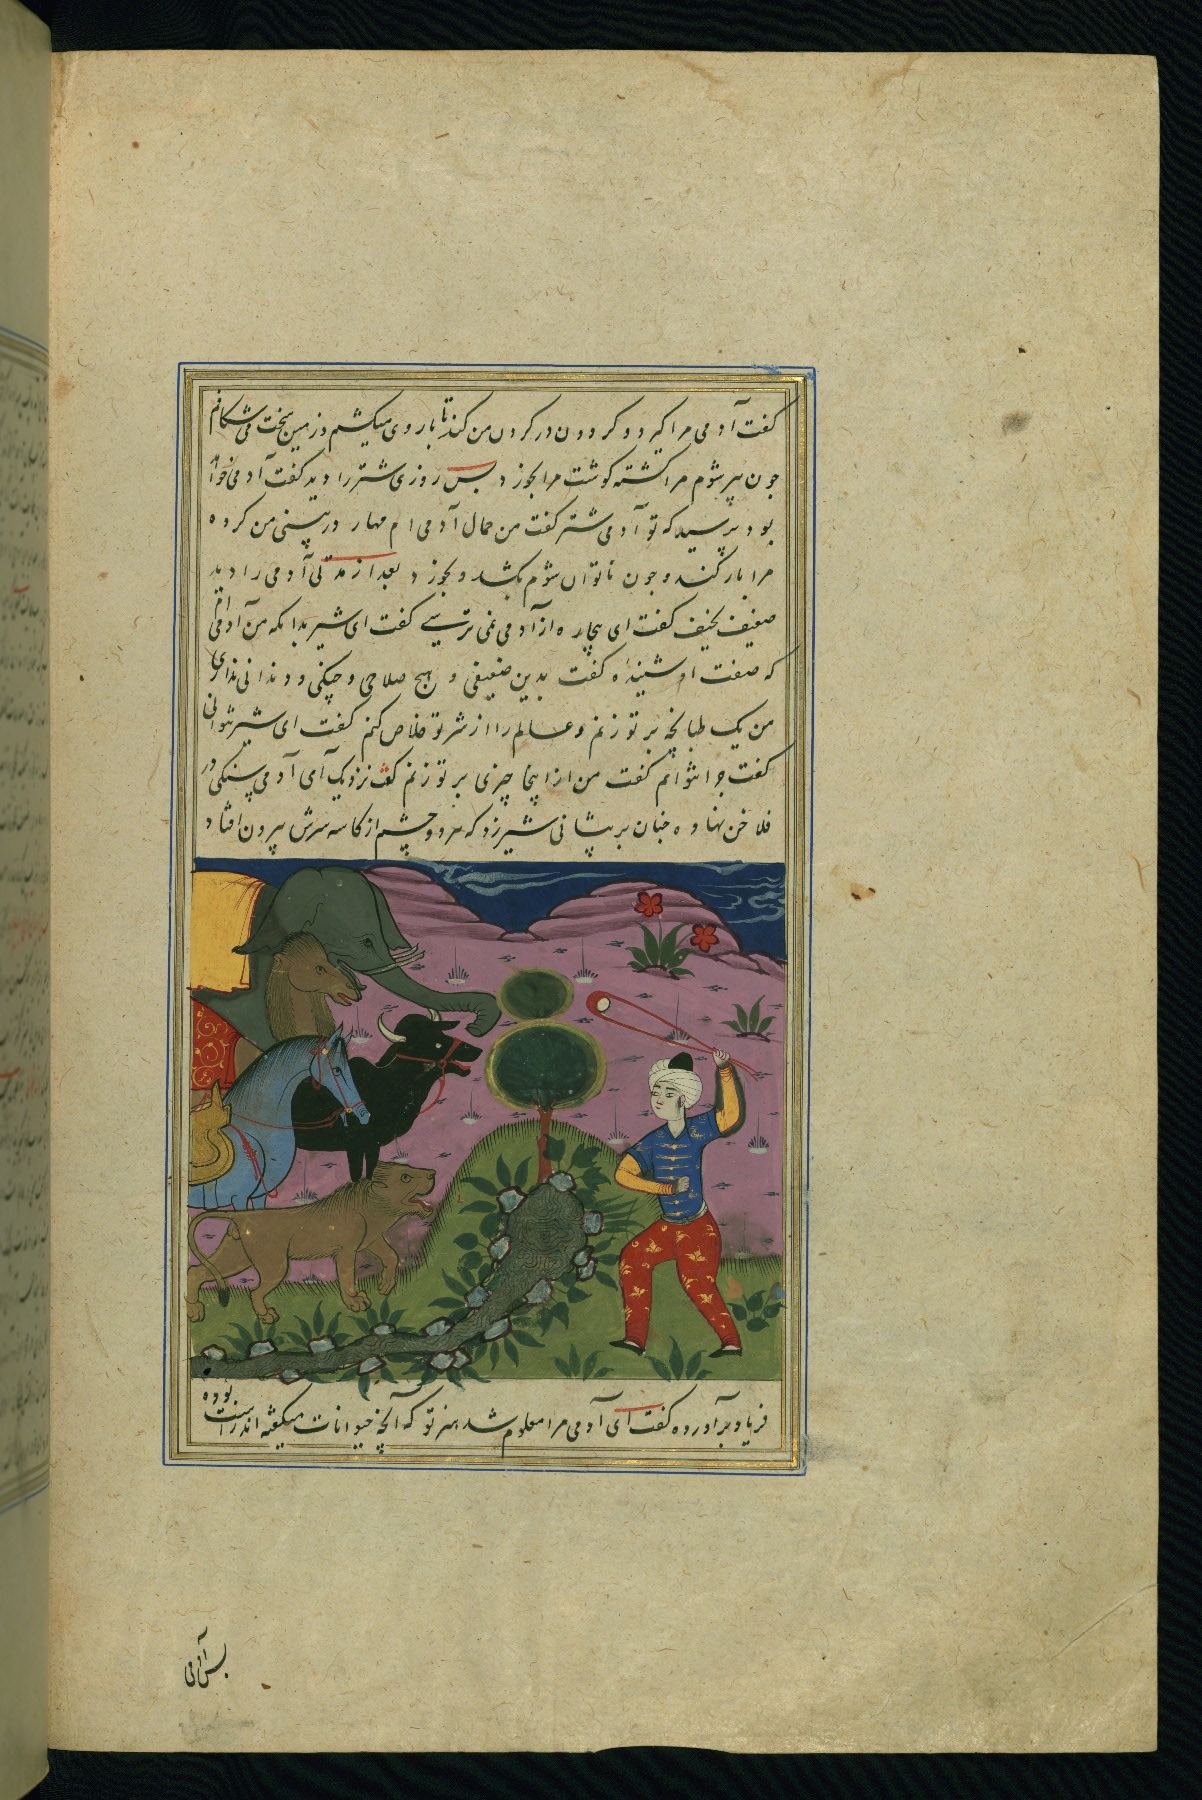 کفت آدمی مرا کیرد و کردون در کردن من کند تا بار وی میکشم و زمین سخت می شکافم
جون پیر شوم مرا کشته کوشت مرا بخورد پس روزی شتر را دید کفت آدمی
بود پرسید که تو آدمی شتر کفت من حمال آدمی ام مهار در بینی من کرده
مرا بار کند و جون ناتوان شوم بکشد و بخورد بعد از مدتی آدمی را دید
ضعیف نحیف کفت ای بیچاره از آدمی نمی ترسی کفت ای شیر بدانکه من آدمی ام
که صفت او شنیدهٔ کفت بدین ضعیفی و هیچ صلاحی و جنکی و دندانی نداری
من یک طبانچه بر تو زنم و عالم را از شر تو خلاص کنم کفت ای شیر نتوانی
کفت جرا نتوانم کفت من از اینجا چیزی بر تو زنم کفت نزدیک آی آدمی سنکی در
فلاخن نهاده جنان بر پیشانی شیر زد که هر دو چشم از کاسه سرش بیرون افتاد
فریاد بر آورده کفت ای آدمی مرا معلوم شد هنر تو که آنچه حیوانات میکفته اند راست بوده
پس آدمی